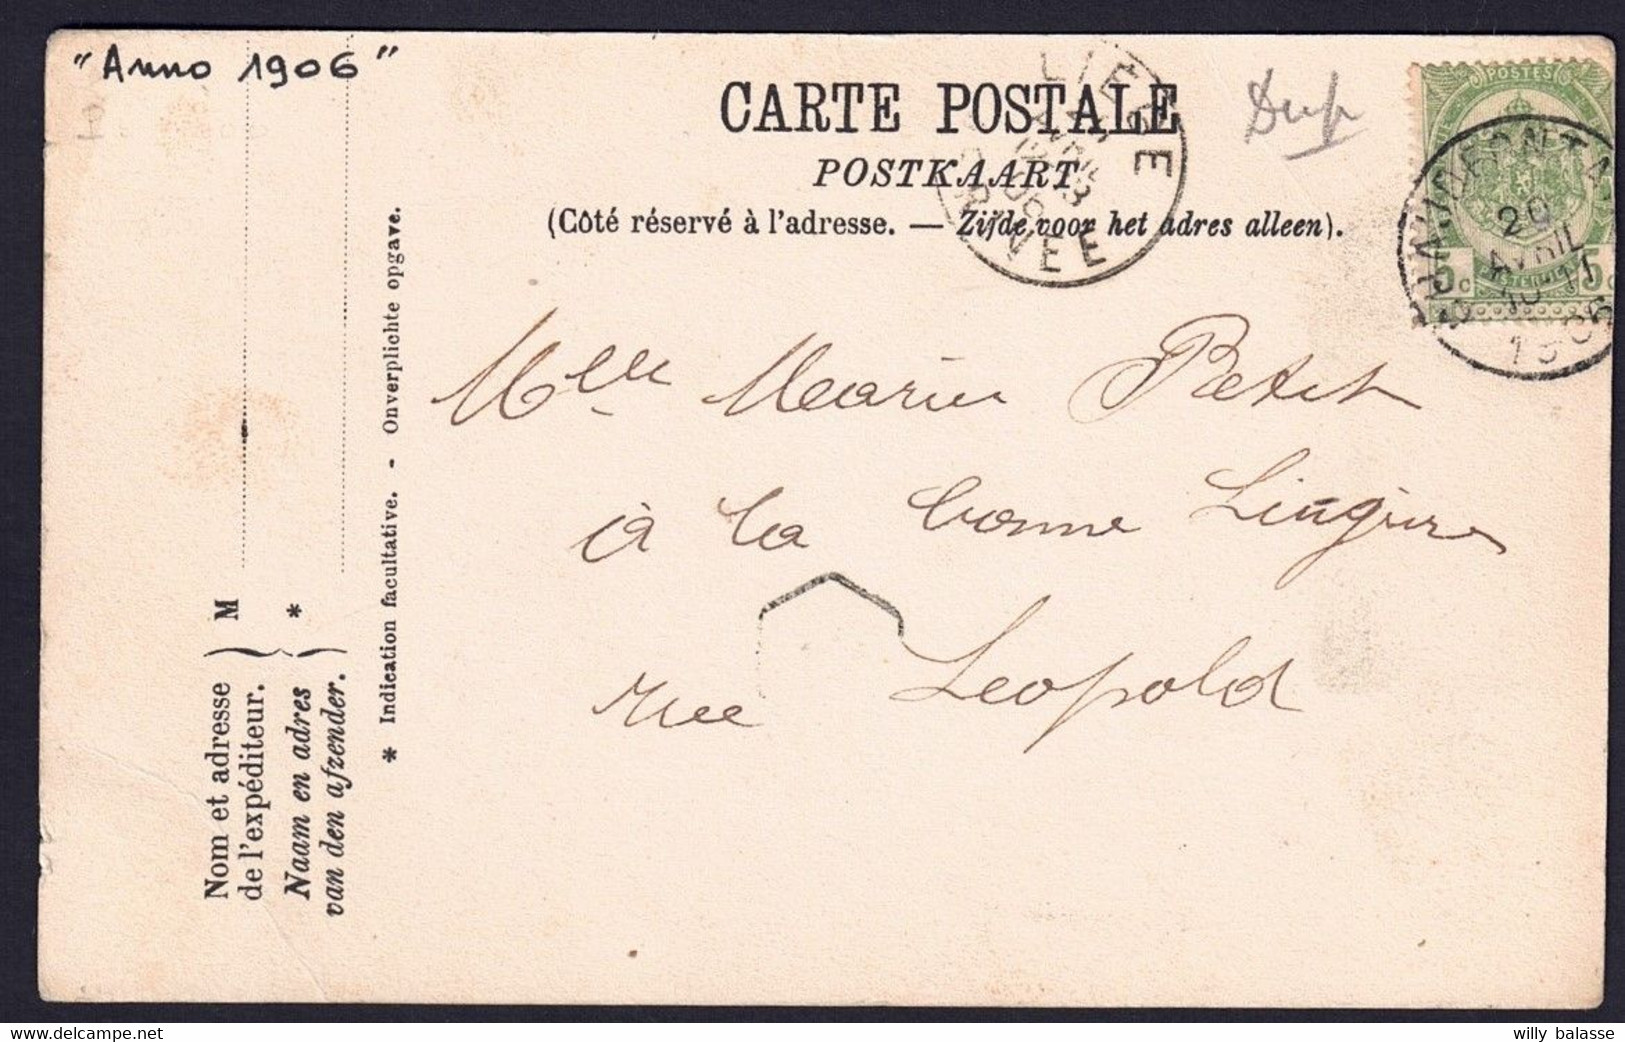 "Anno 1906"
CARTE POSTALE
POSTKAART
(Côté réservé à l'adresse. — Zijde voor het adres alleen).
Dup
LIEGE
ARRIVEE
POSTES
20
AVRIL
10-11
1906
5 c 5 c
Mlle Maria Petit
à la bonne Lingère
rue Leopold
Nom et adresse
de l'expéditeur.
M
Naam en adres
van den afzender.
*
* Indication facultative. - Onverplichte opgave.
willy balasse